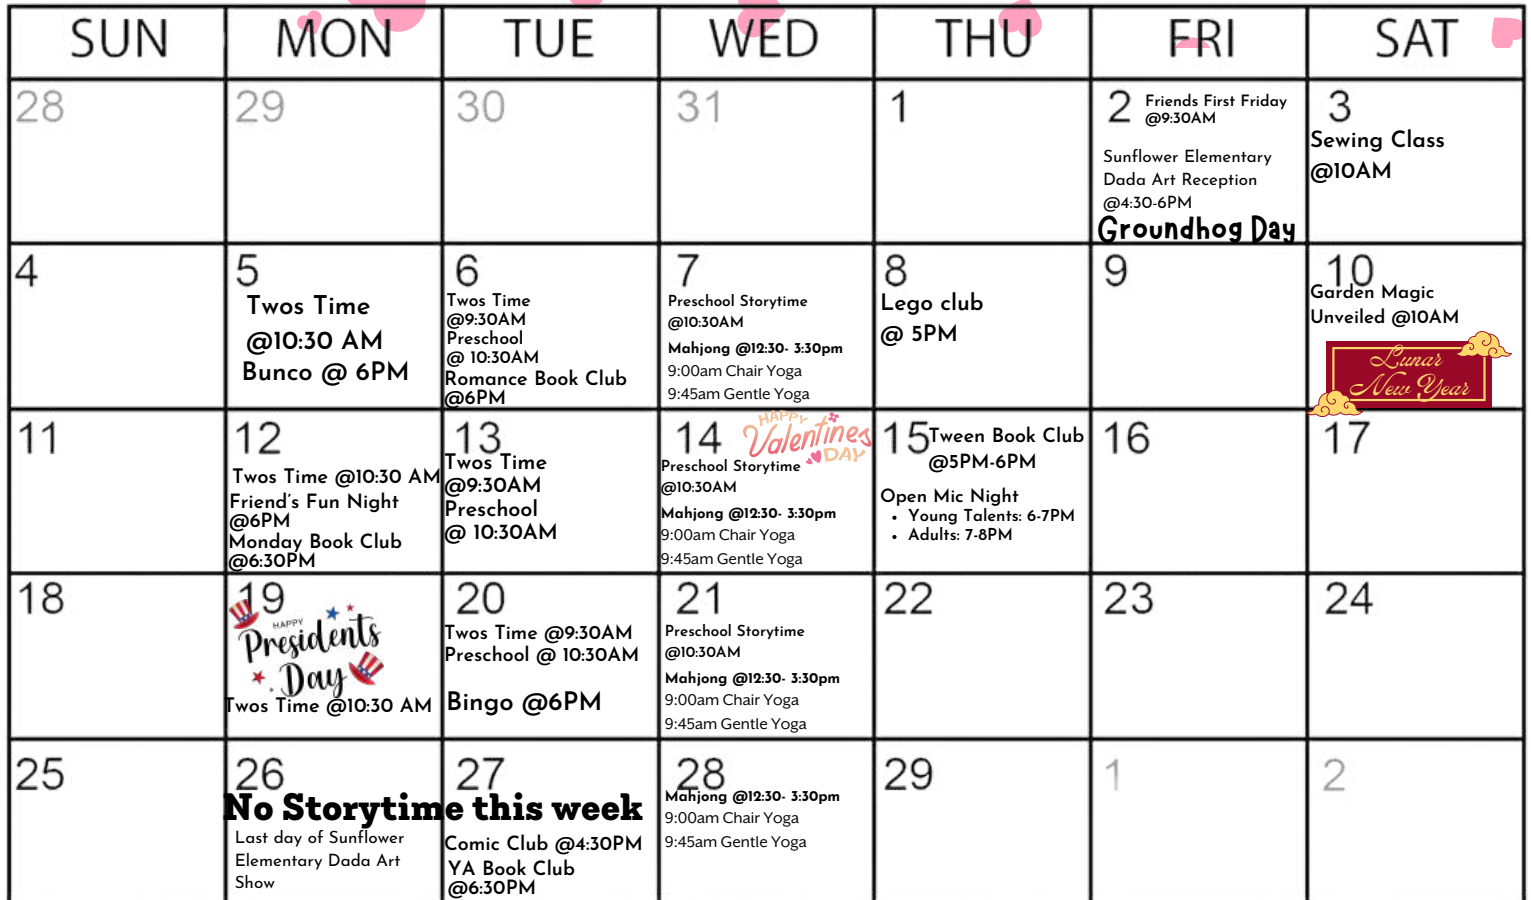 SUN MON TUE WED THU FRI SAT
28 29 30 31 1 2 3
Friends First Friday
@9:30AM
Sunflower Elementary
Dada Art Reception
@4:30-6PM
Groundhog Day
Sewing Class
@10AM
4 5 6 7 8 9 10
Twos Time
@10:30 AM
Bunco @ 6PM
Twos Time
@9:30AM
Preschool
@ 10:30AM
Romance Book Club
@6PM
Preschool Storytime
@10:30AM
Mahjong @12:30- 3:30pm
9:00am Chair Yoga
9:45am Gentle Yoga
Lego club
@ 5PM
Garden Magic
Unveiled @10AM
Lunar
New Year
11 12 13 14 15 16 17
Twos Time @10:30 AM
Friend's Fun Night
@6PM
Monday Book Club
@6:30PM
Twos Time
@9:30AM
Preschool
@ 10:30AM
HAPPY
Valentines
DAY
Preschool Storytime
@10:30AM
Mahjong @12:30- 3:30pm
9:00am Chair Yoga
9:45am Gentle Yoga
Tween Book Club
@5PM-6PM
Open Mic Night
• Young Talents: 6-7PM
• Adults: 7-8PM
18 19 20 21 22 23 24
HAPPY
Presidents
Day
Twos Time @10:30 AM
Twos Time @9:30AM
Preschool @ 10:30AM
Bingo @6PM
Preschool Storytime
@10:30AM
Mahjong @12:30- 3:30pm
9:00am Chair Yoga
9:45am Gentle Yoga
25 26 27 28 29 1 2
No Storytime this week
Last day of Sunflower
Elementary Dada Art
Show
Comic Club @4:30PM
YA Book Club
@6:30PM
Mahjong @12:30- 3:30pm
9:00am Chair Yoga
9:45am Gentle Yoga